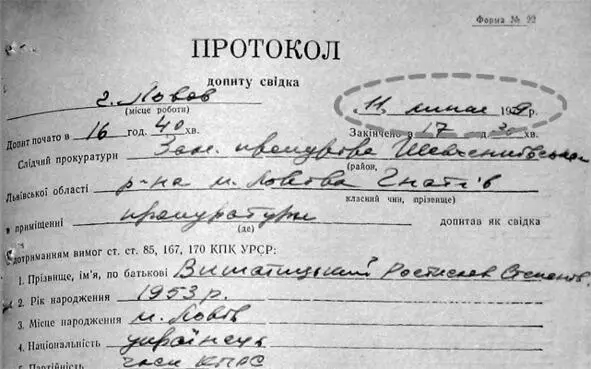 Форма № 22
ПРОТОКОЛ
допиту свідка
г. Львов
(місце роботи)
11 липня 19 9 р.
Допит почато в 16 год. 40 хв. Закінчено в 17 д 30 хв.
Слідчий прокуратури Зам. прокурора Шевченківського
(район,
Львівської області р-на м. Львова Гнатів
класний чин, прізвище)
в приміщенні прокуратури допитав як свідка
(де)
дотриманням вимог ст. ст. 85, 167, 170 КПК УРСР:
1. Прізвище, ім'я, по батькові Ростислав Степанов.
2. Рік народження 1953 р.
3. Місце народження м. Львів
4. Національність українець
5. Партійність член КПРС